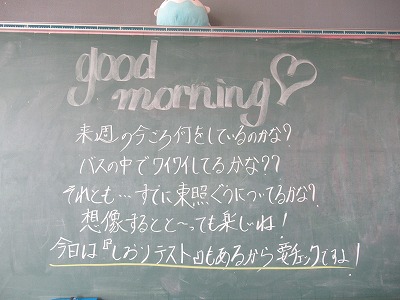 good
morning♡
来週の今ごろ何をしているのかな?
バスの中でワイワイしてるかな??
それとも…すでに東照ぐうについてるかな?
想像するとと〜っても楽しいね!
今日は『しおりテスト』もあるから要チェックですよ!